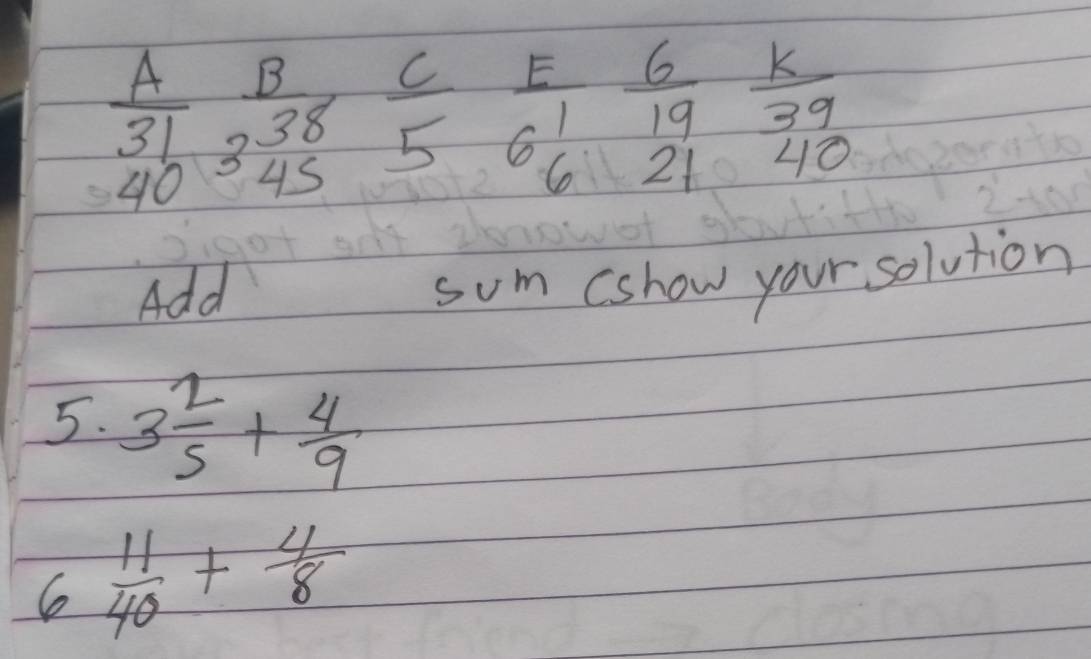 A B C E G K
31/40 3 38/45 5 6 1/6 19/21 39/40
Add sum (show your solution
5. 3 2/5 + 4/9
6 11/40 + 4/8